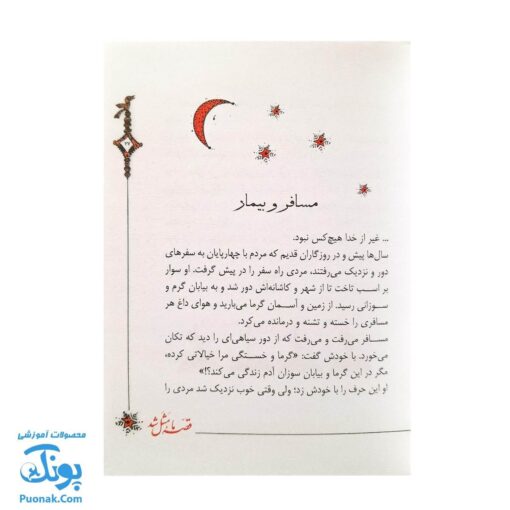 ۲۷
مسافر و بیمار
... غیر از خدا هیچ‌کس نبود.
سال‌ها پیش و در روزگاران قدیم که مردم با چهارپایان به سفرهای
دور و نزدیک می‌رفتند، مردی راه سفر را در پیش گرفت. او سوار
بر اسب تاخت تا از شهر و کاشانه‌اش دور شد و به بیابان گرم و
سوزانی رسید. از زمین و آسمان گرما می‌بارید و هوای داغ هر
مسافری را خسته و تشنه و درمانده می‌کرد.
مسافر می‌رفت و می‌رفت که از دور سیاهی‌ای را دید که تکان
می‌خورد. با خودش گفت: «گرما و خستگی مرا خیالاتی کرده،
مگر در این گرما و بیابان سوزان آدم زندگی می‌کند؟!»
او این حرف را با خودش زد؛ ولی وقتی خوب نزدیک شد مردی را
قصه ما مثل شد
محصولات آموزشی
پونک
Puonak.Com